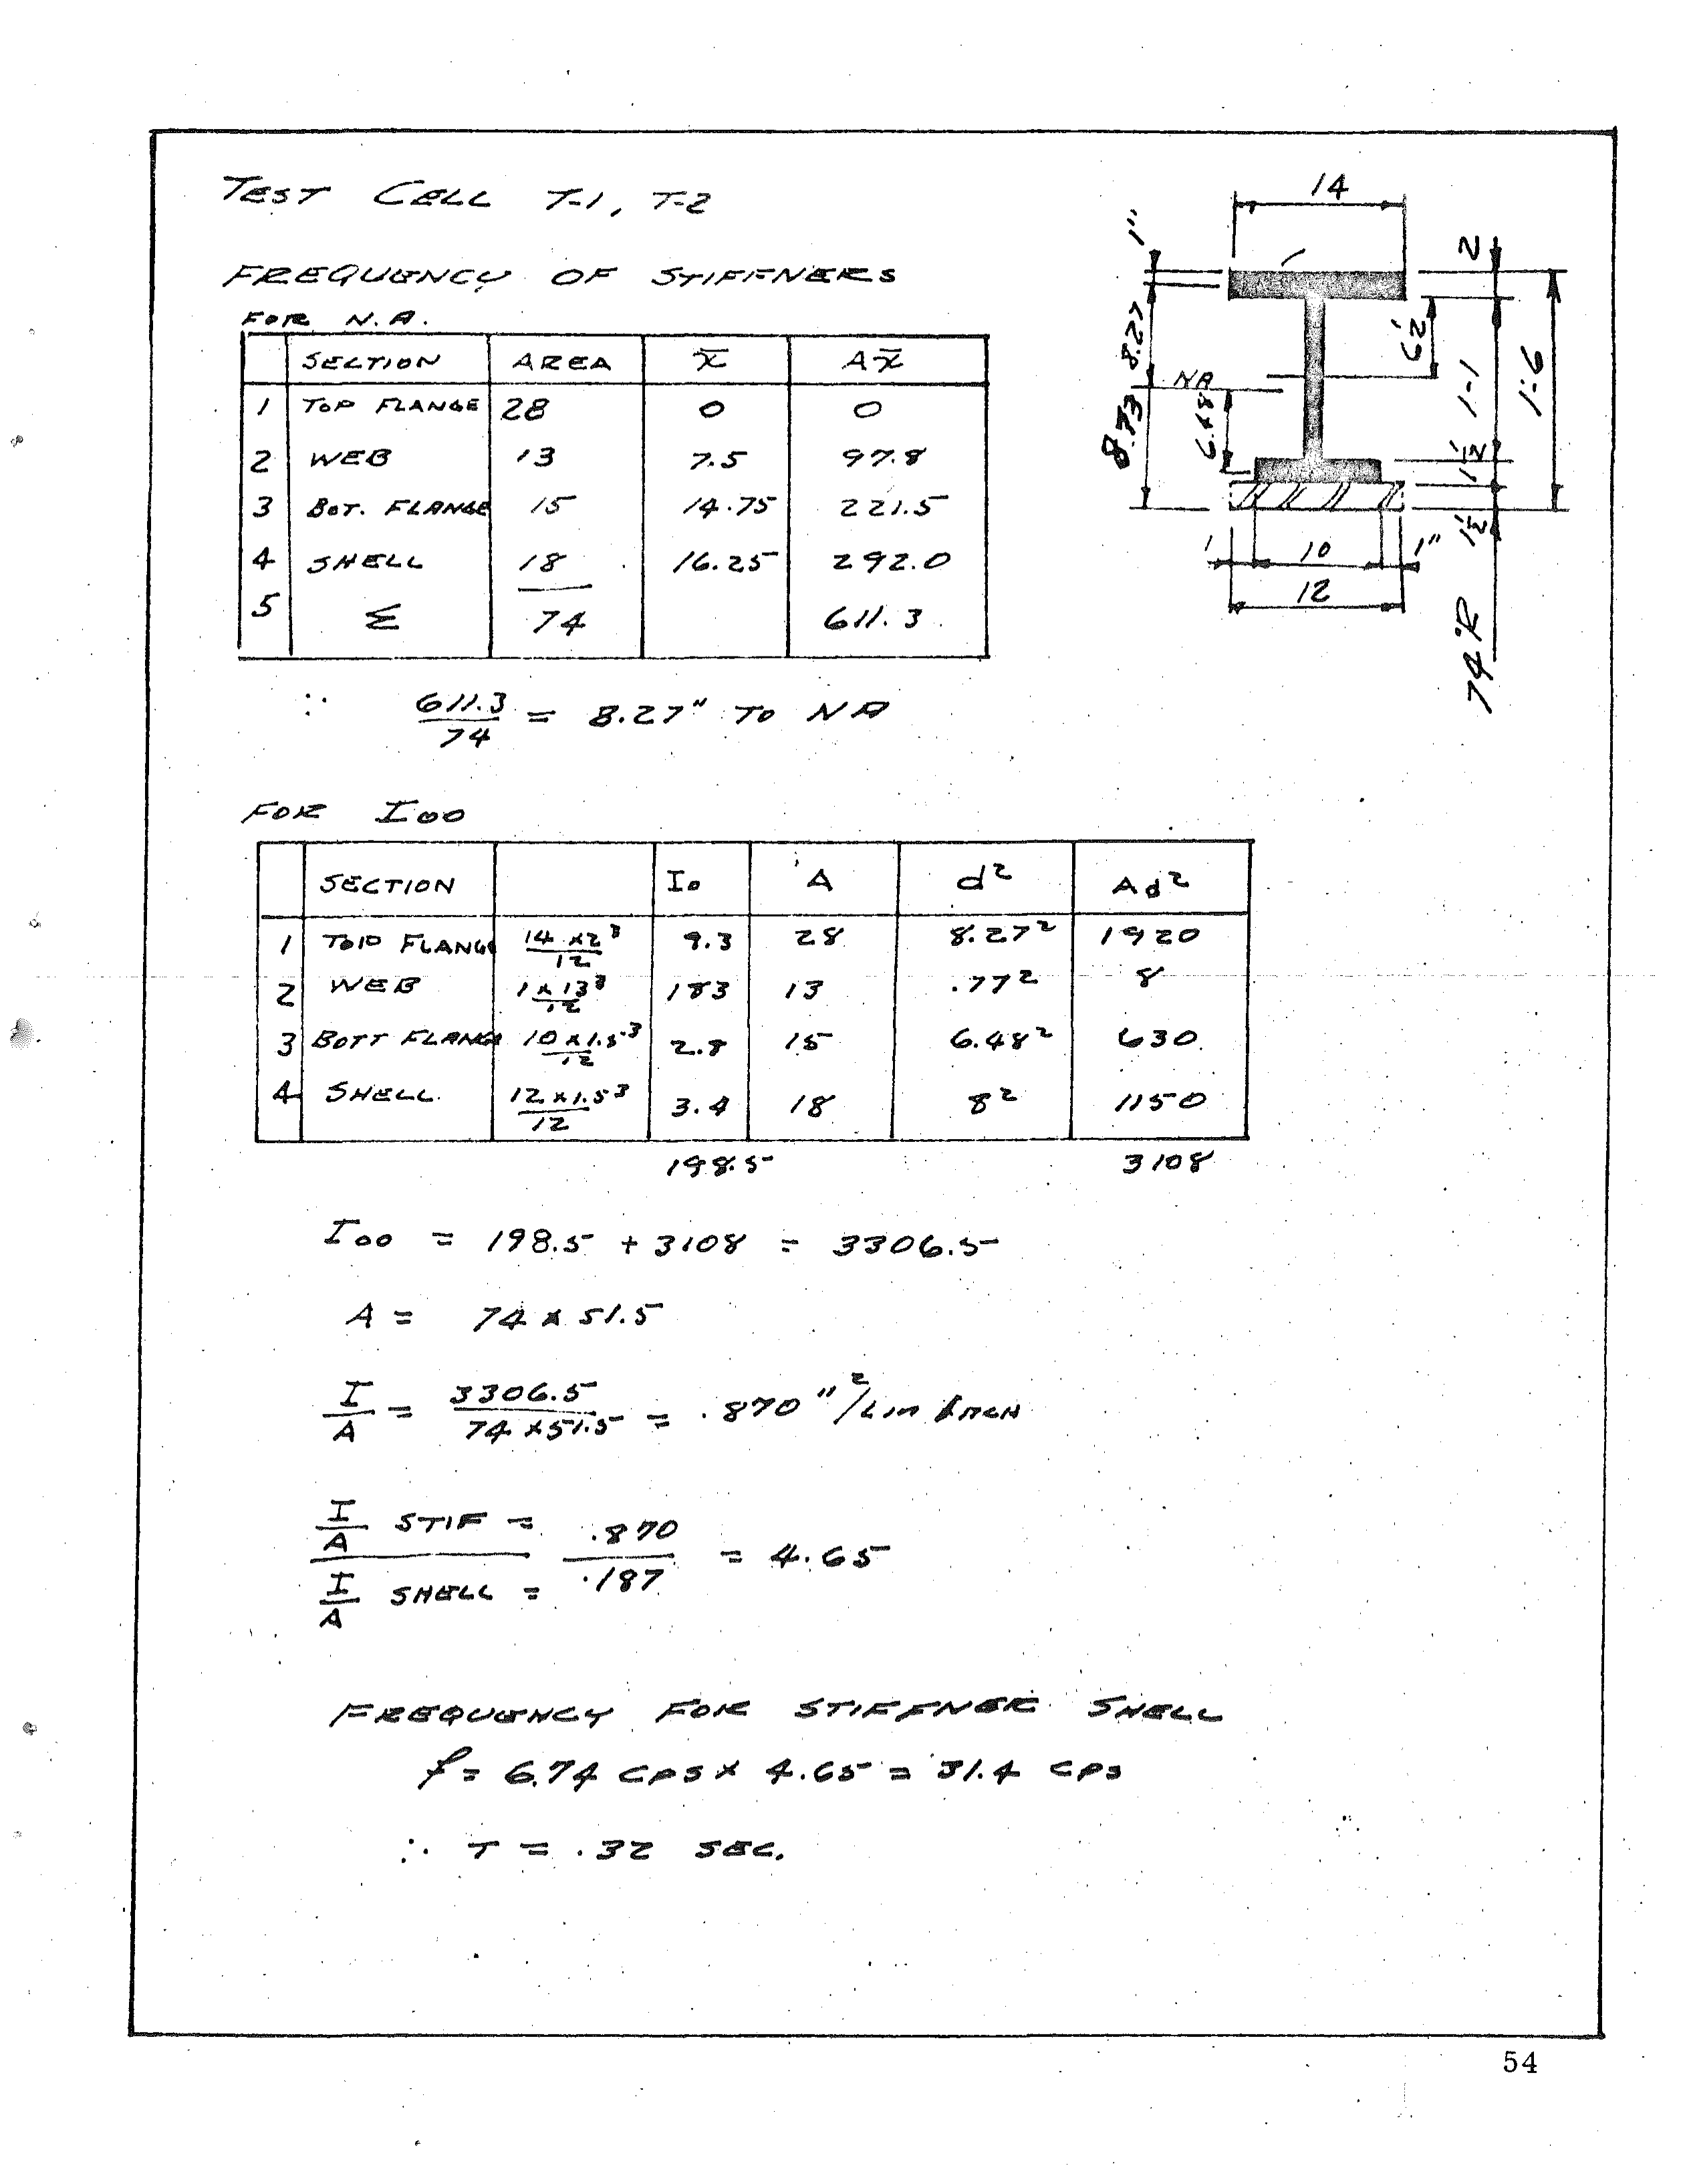 TEST CELL T-1, T-2
FREQUENCY OF STIFFNERS
FOR N.A.
SECTION AREA x̄ Ax̄
1 TOP FLANGE 28 0 0
2 WEB 13 7.5 97.8
3 BOT. FLANGE 15 14.75 221.5
4 SHELL 18 16.25 292.0
5 Σ 74 611.3
∴ 611.3/74 = 8.27" TO NA
14
1"
8.27
8.73
NA
6.48
6½
2
1-1
1½
1½
1'-6
1
10
1"
12
74"R
FOR I₀₀
SECTION I₀ A d² Ad²
1 TOP FLANGE 14 x2³/12 9.3 28 8.27² 1920
2 WEB 1 x 13³/12 183 13 .77² 8
3 BOTT FLANGE 10 x 1.5³/12 2.8 15 6.48² 630
4 SHELL 12 x 1.5³/12 3.4 18 8² 1150
198.5 3108
I₀₀ = 198.5 + 3108 = 3306.5
A = 74 x 51.5
I/A = 3306.5/74 x 51.5 = .870 "²/LIN INCH
I/A STIF = .870
= 4.65
I/A SHELL = .187
FREQUENCY FOR STIFFNER SHELL
f = 6.74 CPS x 4.65 = 31.4 CPS
∴ T = .32 SEC.
54